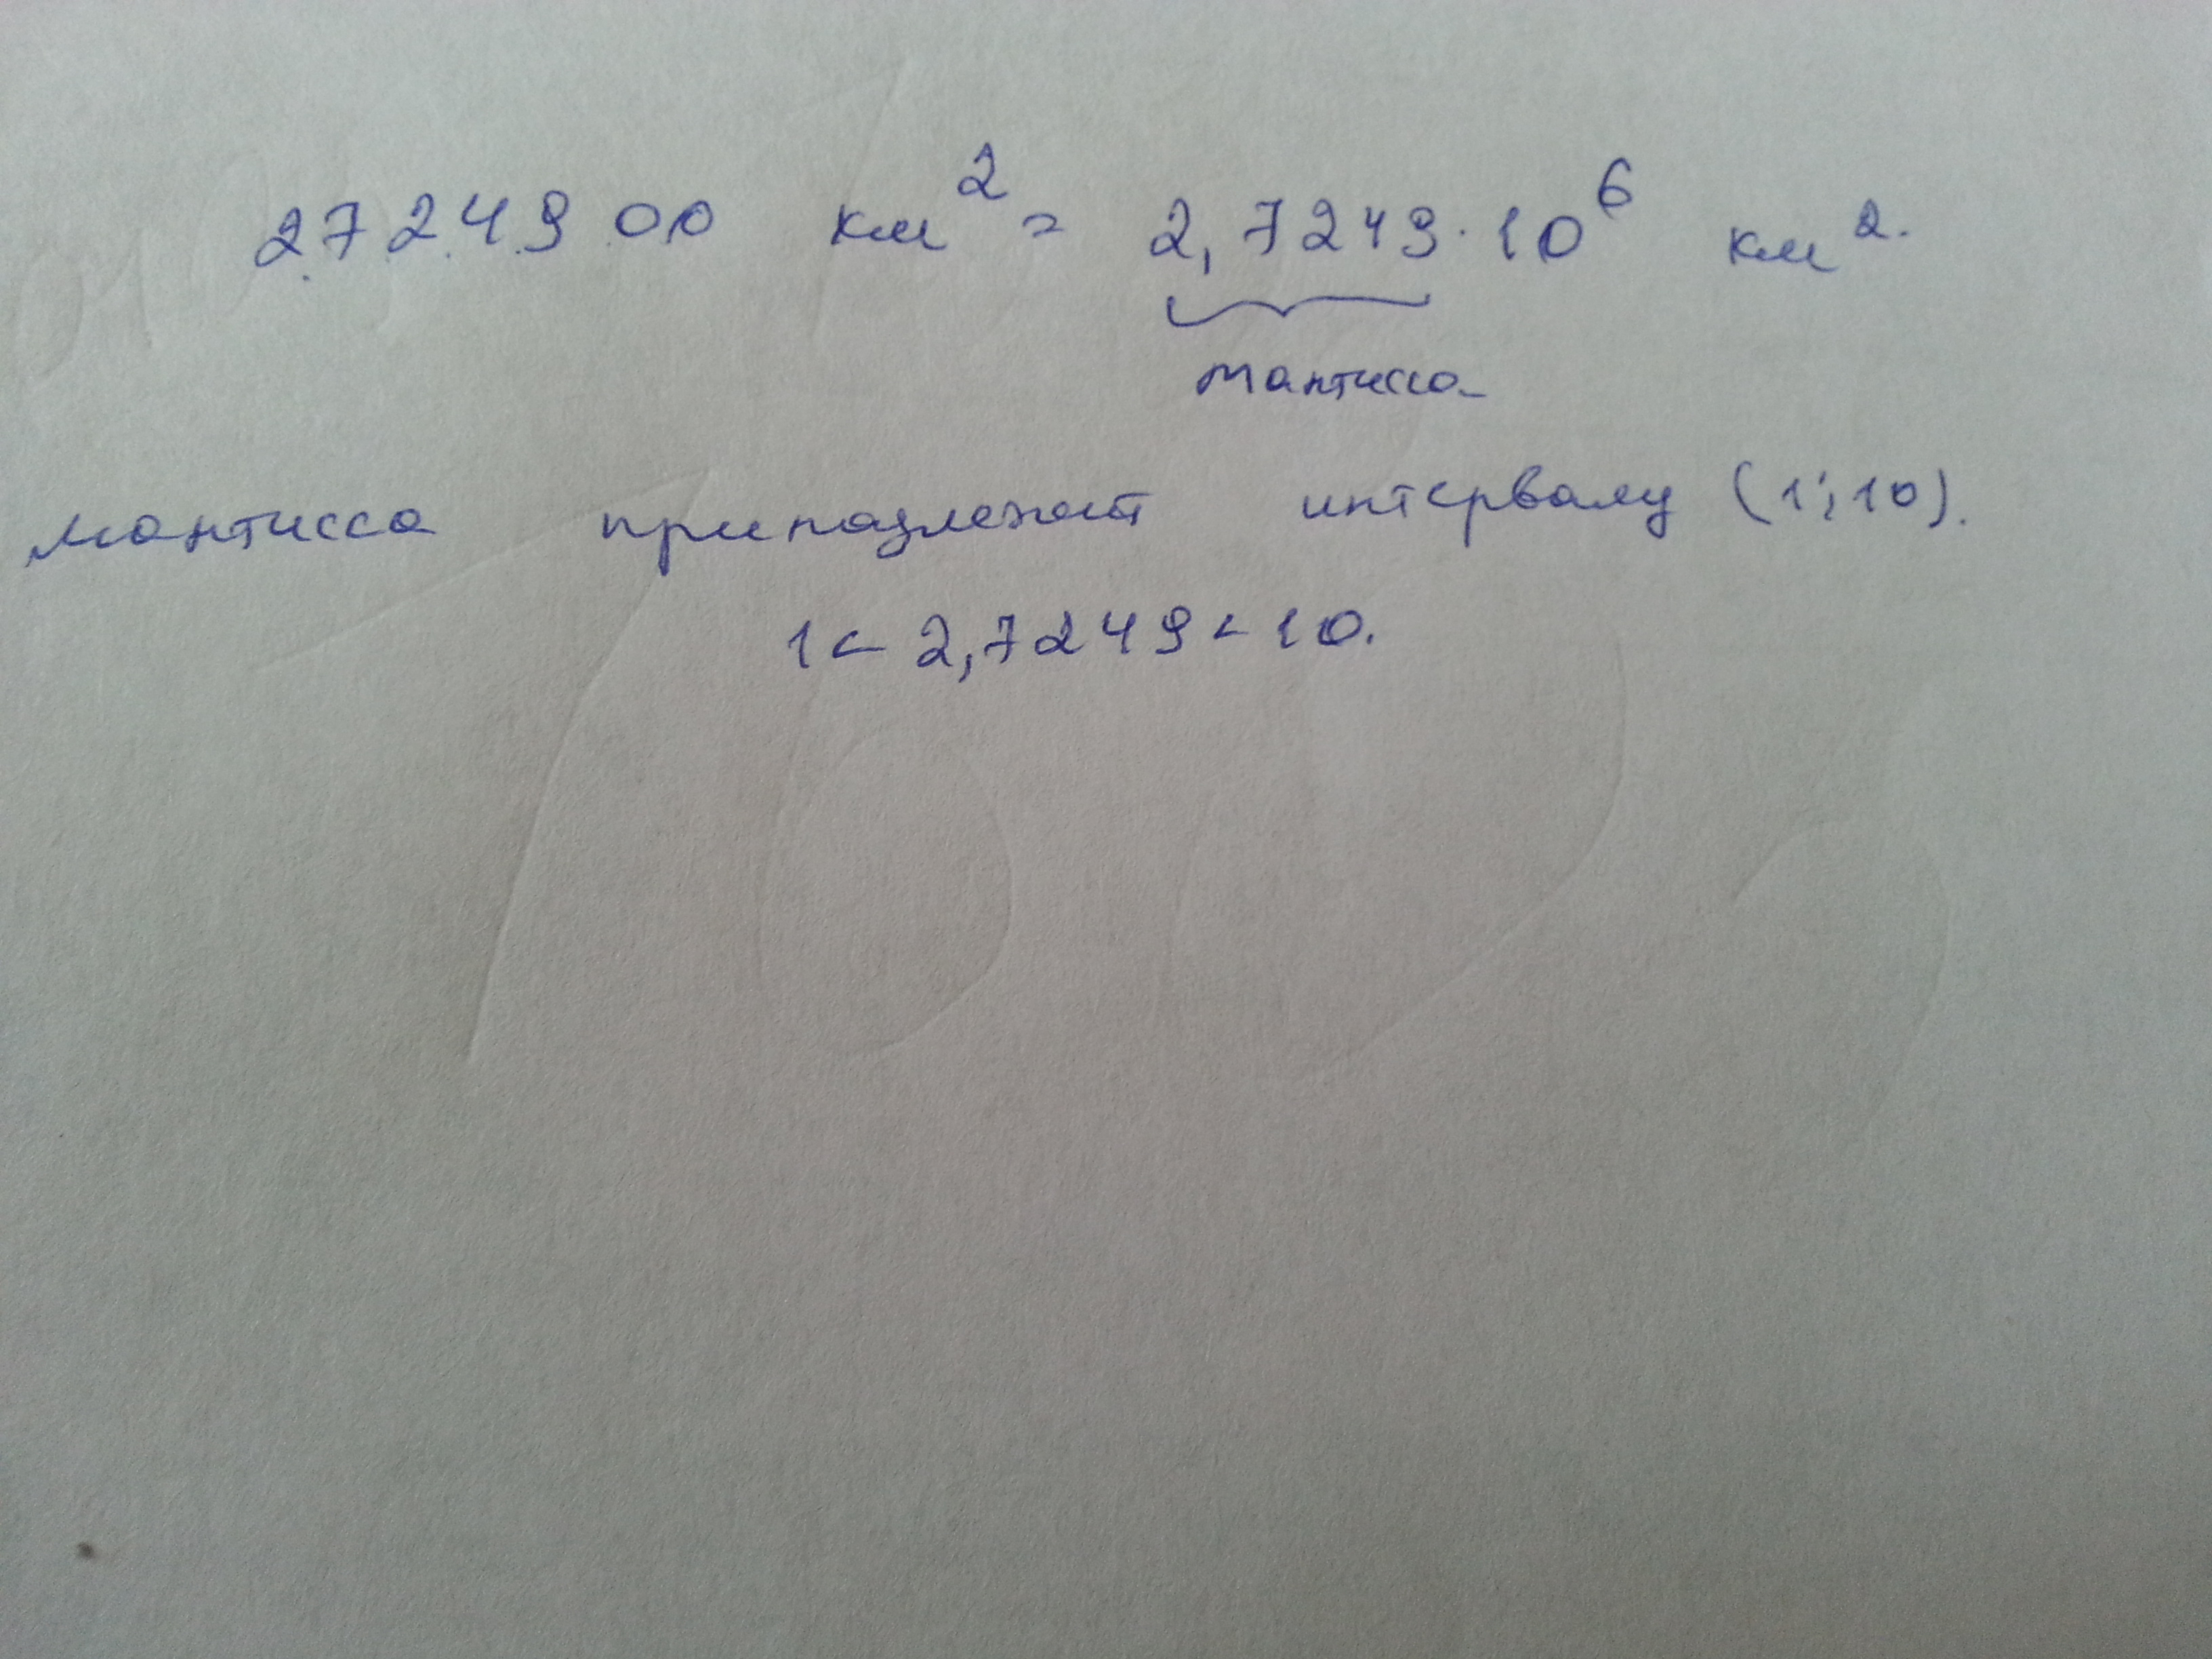 2724900 км² = 2,7249·10⁶ км².
мантисса
мантисса принадлежит интервалу (1;10).
1 < 2,7249 < 10.